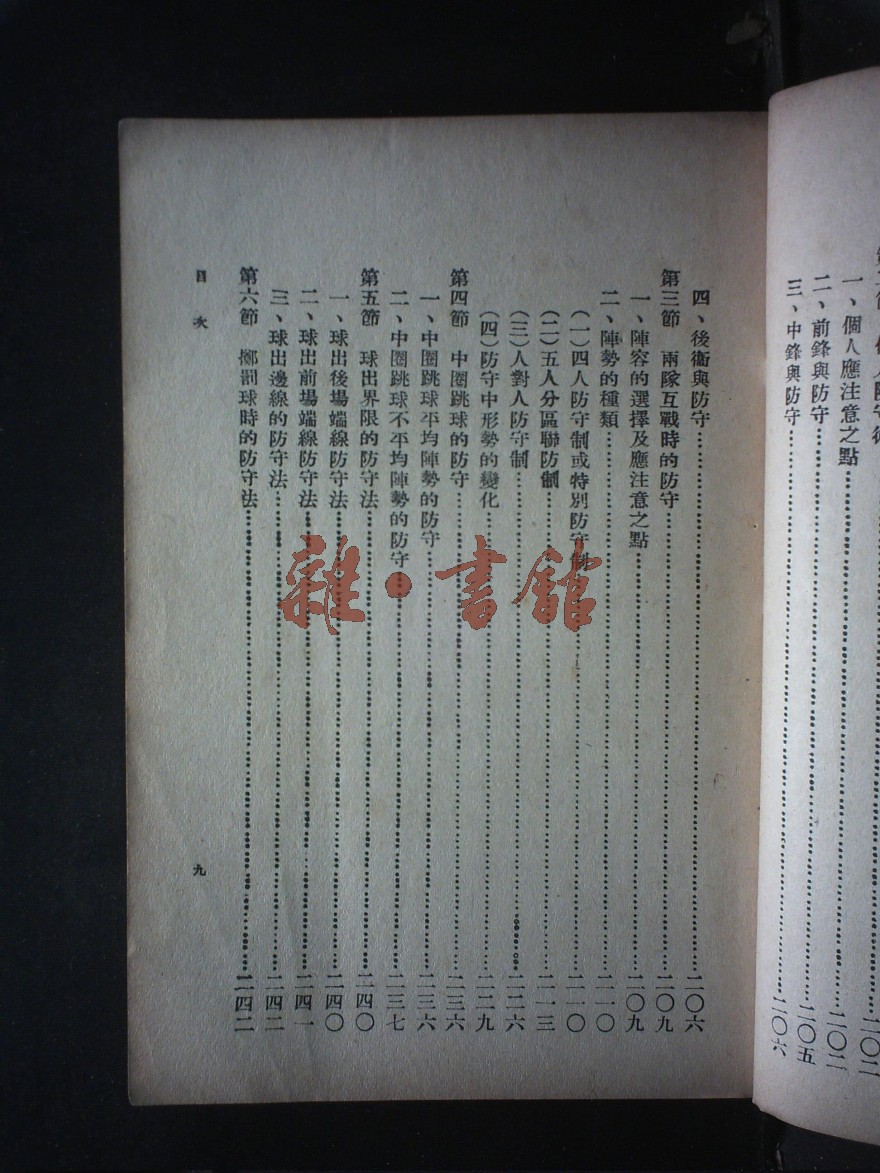 一、個人應注意之點……二〇二
二、前鋒與防守……二〇五
三、中鋒與防守……二〇六
四、後衞與防守……二〇六
第三節　兩隊互戰時的防守……二〇九
一、陣容的選擇及應注意之點……二〇九
二、陣勢的種類……二一〇
（一）四人防守制或特別防守制……二一〇
（二）五人分區聯防制……二一三
（三）人對人防守制……二二六
（四）防守中形勢的變化……二二九
第四節　中圈跳球的防守……二三六
一、中圈跳球平均陣勢的防守……二三六
二、中圈跳球不平均陣勢的防守……二三七
第五節　球出界限的防守法……二四〇
一、球出後場端線防守法……二四〇
二、球出前場端線防守法……二四一
三、球出邊線的防守法……二四二
第六節　擲罰球時的防守法……二四二
目次
九
雜·書館